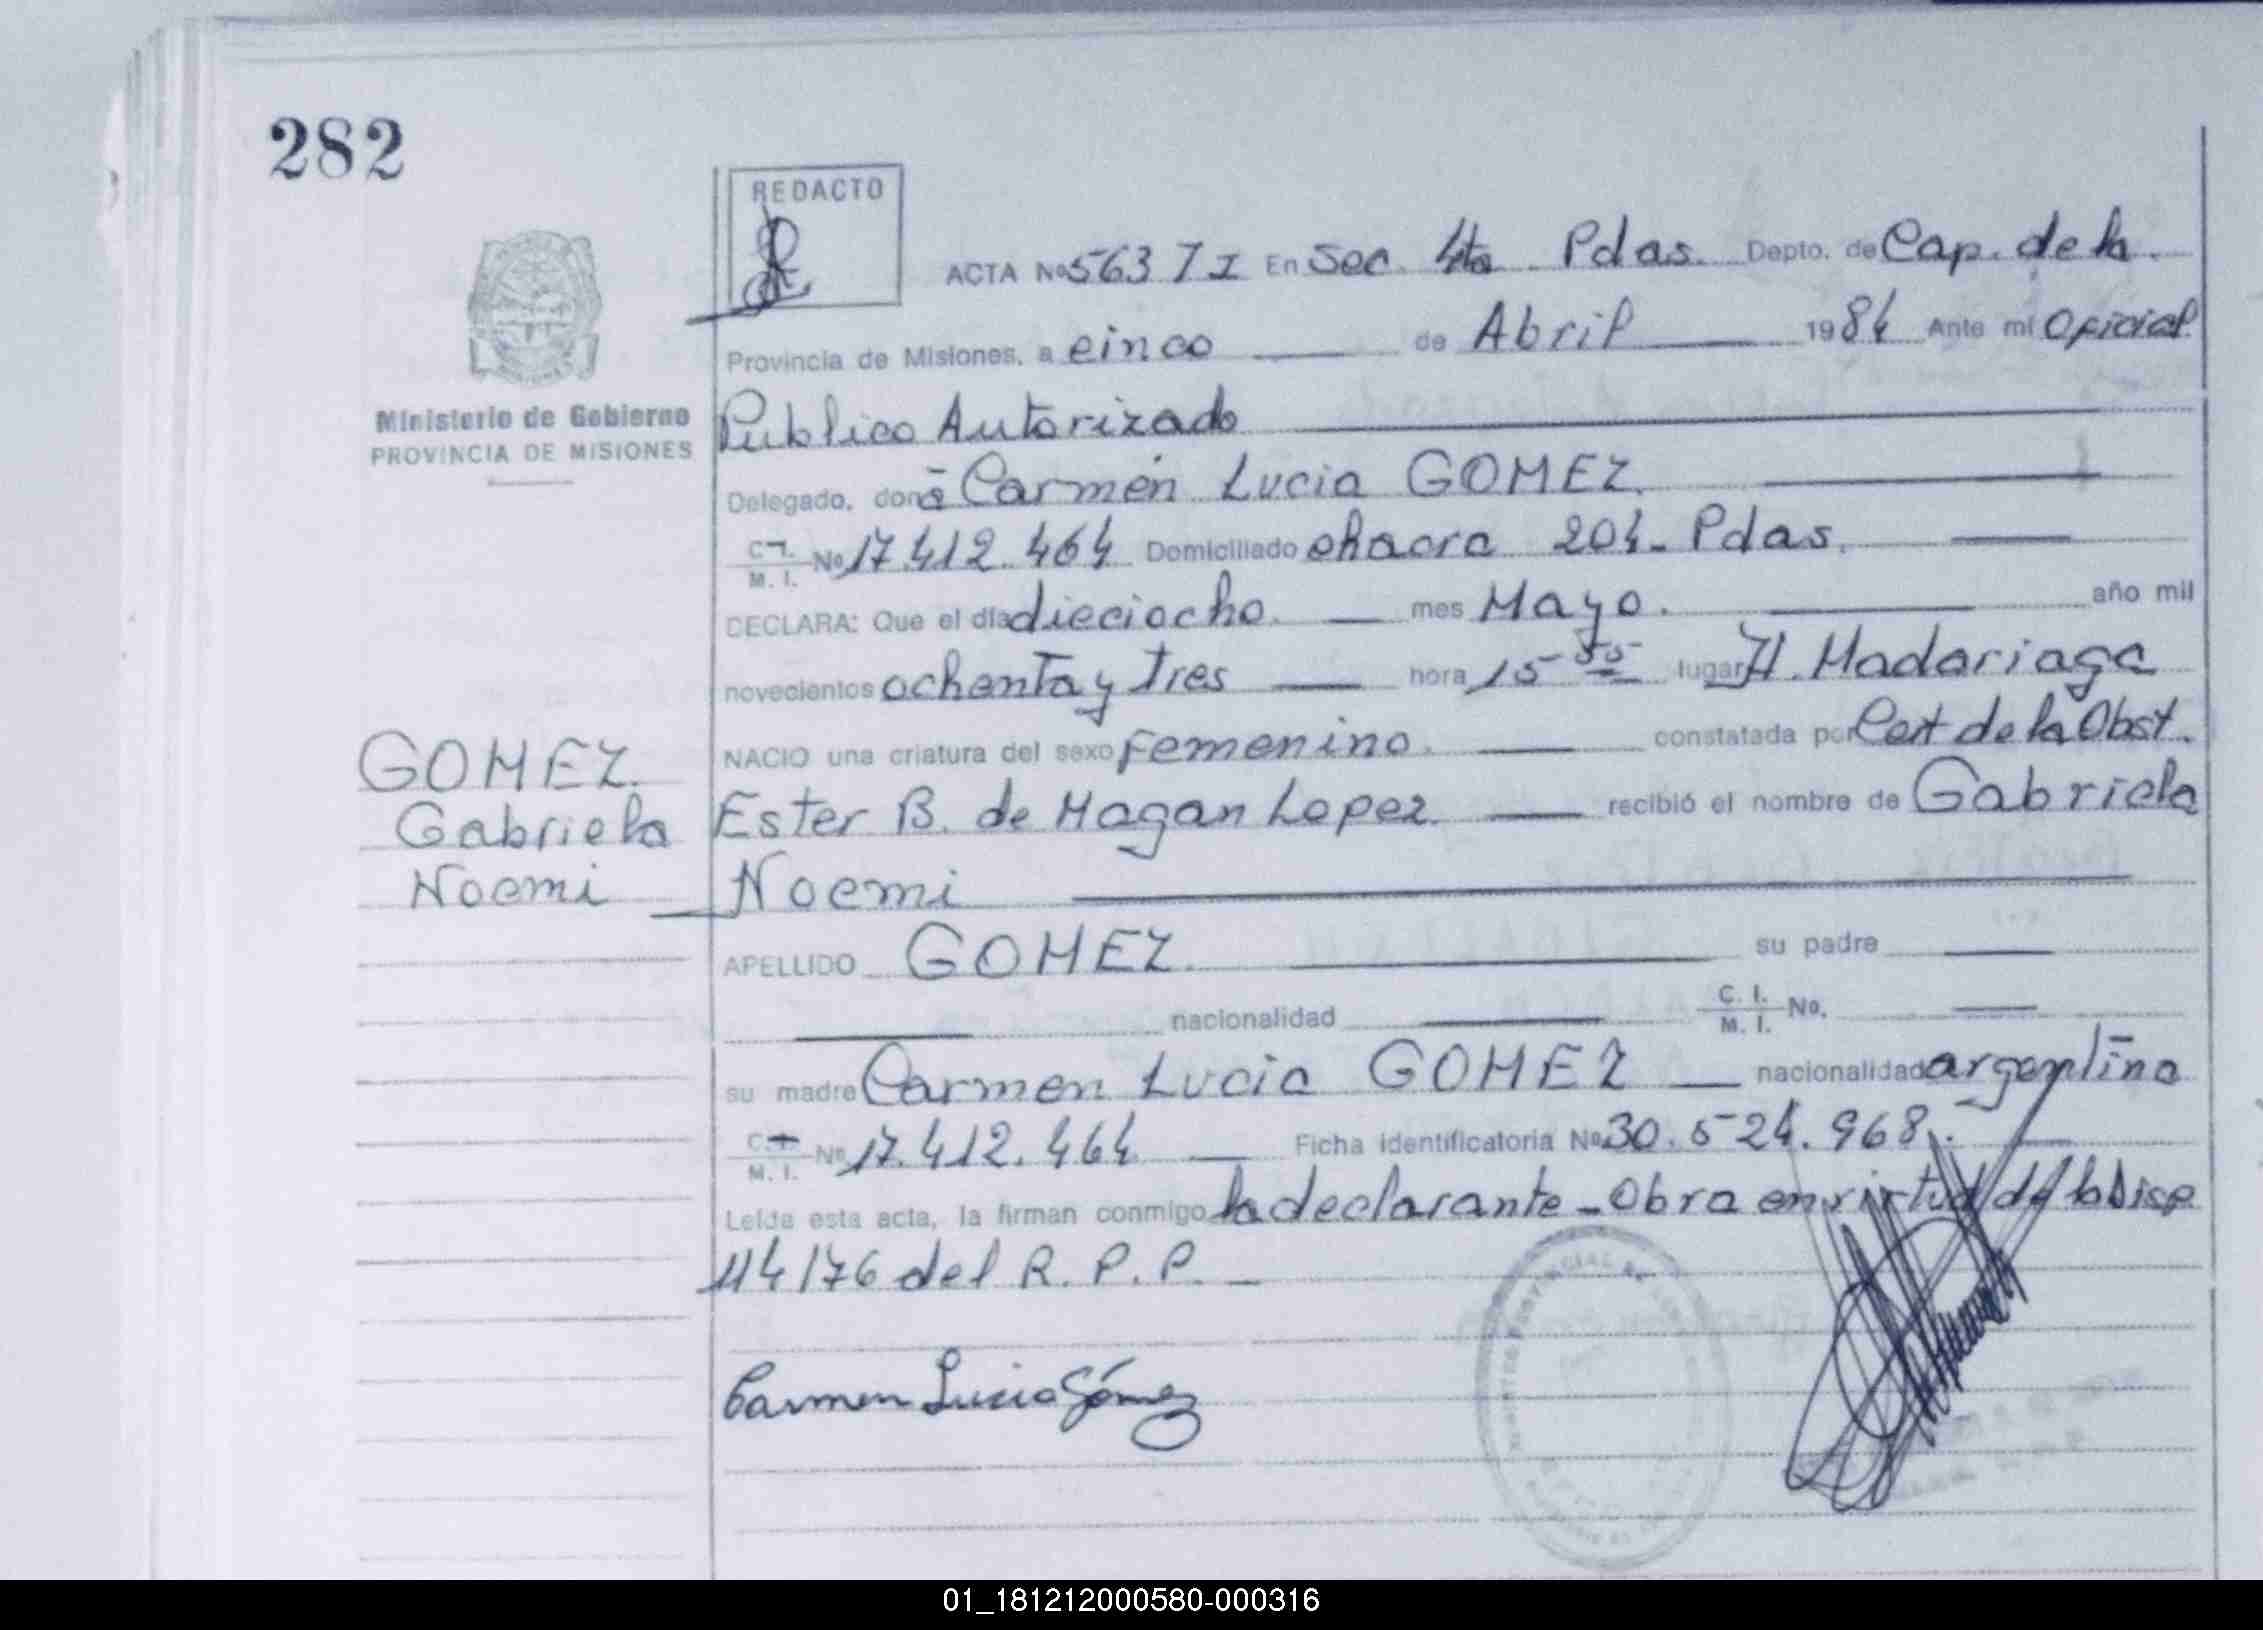 282
REDACTO
ACTA No 563 T I En Sec. 4ta Pdas. Depto. de Cap. de la
Provincia de Misiones, a cinco de Abril 1984 Ante mí Oficial
Publico Autorizado
Ministerio de Gobierno
PROVINCIA DE MISIONES
Delegado, doña Carmen Lucia GOMEZ.
C. I. M. I. No 17.412.464 Domiciliado chacra 204- Pdas.
DECLARA: Que el día dieciocho. mes Mayo. año mil
novecientos ochenta y tres hora 15 55 lugar H. Madariaga
NACIO una criatura del sexo femenino. constatada por Cert de la Obst.
GOMEZ.
Gabriela
Noemi
Ester B. de Magan Lopez. recibió el nombre de Gabriela
Noemi
APELLIDO GOMEZ. su padre
nacionalidad C. I. M. I. No.
su madre Carmen Lucia GOMEZ nacionalidad argentina
C. I. M. I. No 17.412.464 Ficha identificatoria No 30.524.968.-
Leída esta acta, la firman conmigo la declarante - Obra en virtud de la Disp.
114/76 del R. P. P. -
Carmen Lucia Gómez
01_181212000580-000316